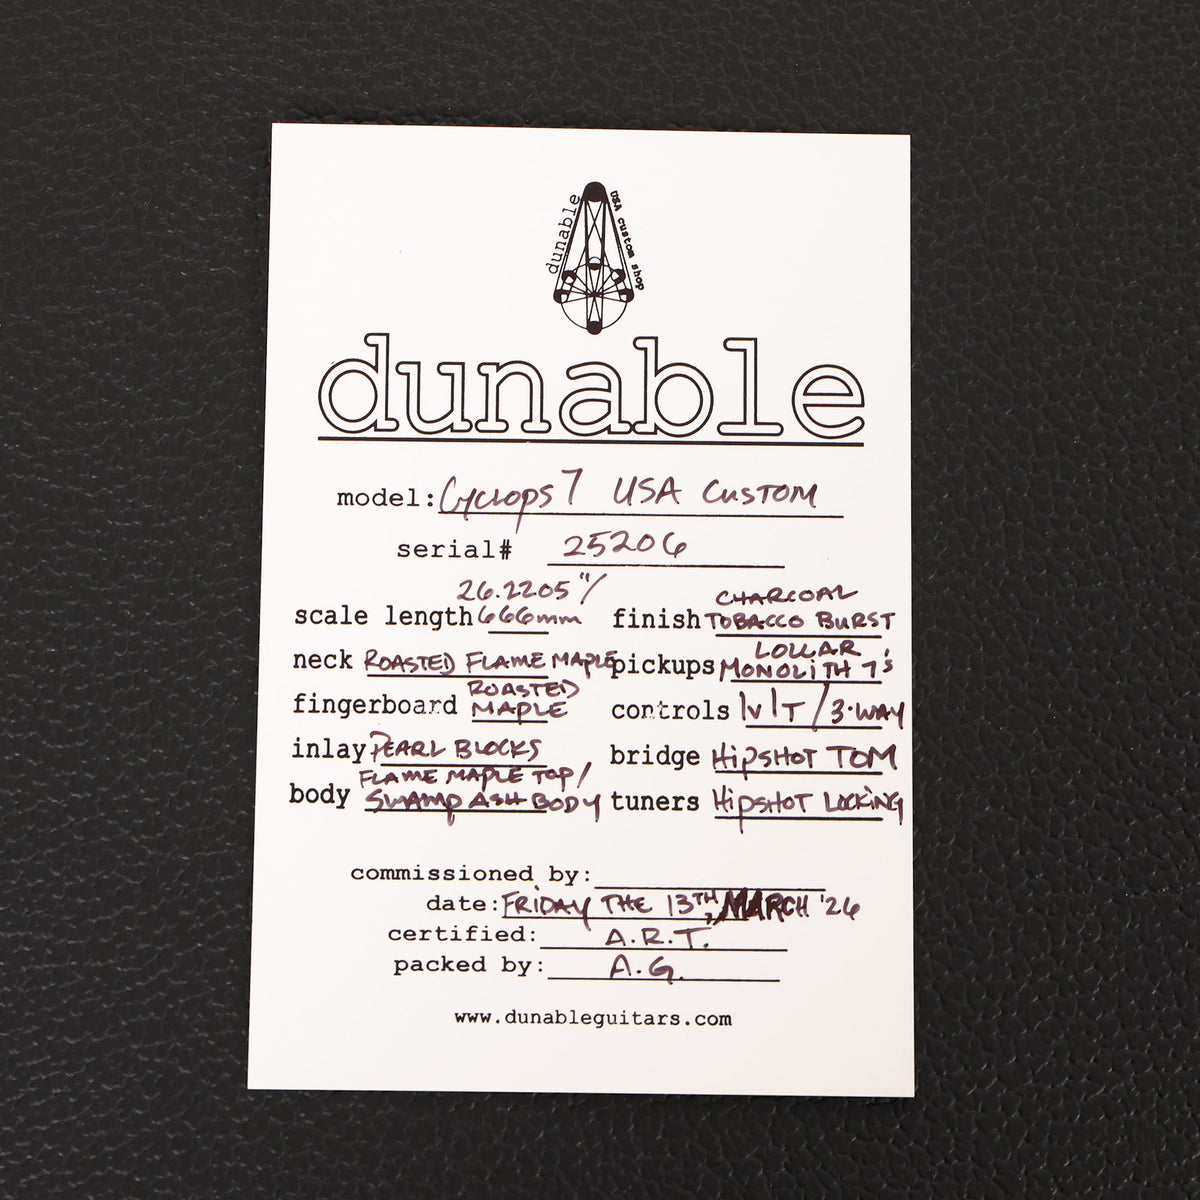 dunable USA custom shop
dunable
model: Cyclops 7 USA CUSTOM
serial# 25206
scale length 26.2205"/ 666mm
finish CHARCOAL TOBACCO BURST
neck ROASTED FLAME MAPLE
pickups LOLLAR MONOLITH 7's
fingerboard ROASTED MAPLE
controls 1V 1T / 3-WAY
inlay PEARL BLOCKS
bridge HIPSHOT TOM
body FLAME MAPLE TOP/ SWAMP ASH BODY
tuners HIPSHOT LOCKING
commissioned by:
date: FRIDAY THE 13TH, MARCH '26
certified: A.R.T.
packed by: A.G.
www.dunableguitars.com